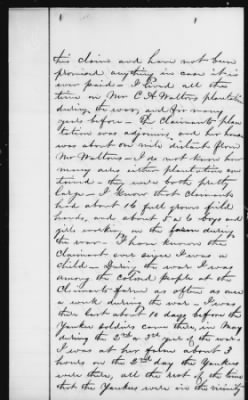 this claim and have not been
promised anything in case it is
ever paid - I lived all the
time on Mr C. A. Walton's plantation
during the war, and for many
years before - The Claimants plan
tation was adjoining, and her house
was about one mile distant from
Mr Waltons - I do not know how
many acres either plantation con
tained - they were both pretty
large - I know that Claimants
had about 16 full grown field
hands, and about 5 or 6 boys and
girls working on the farm during
the war - I have known the
Claimant ever since I was a
child - During the war I was
among the colored people at the
Claimants farm as often as once
a week during the war - I was
there last about 10 days before the
Yankee soldiers came there, in May
during the 2d or 3d year of the war.
I was at her place about 3
hours on the 2nd day the Yankees
were there, all the rest of the time
that the Yankees were in the vicinity